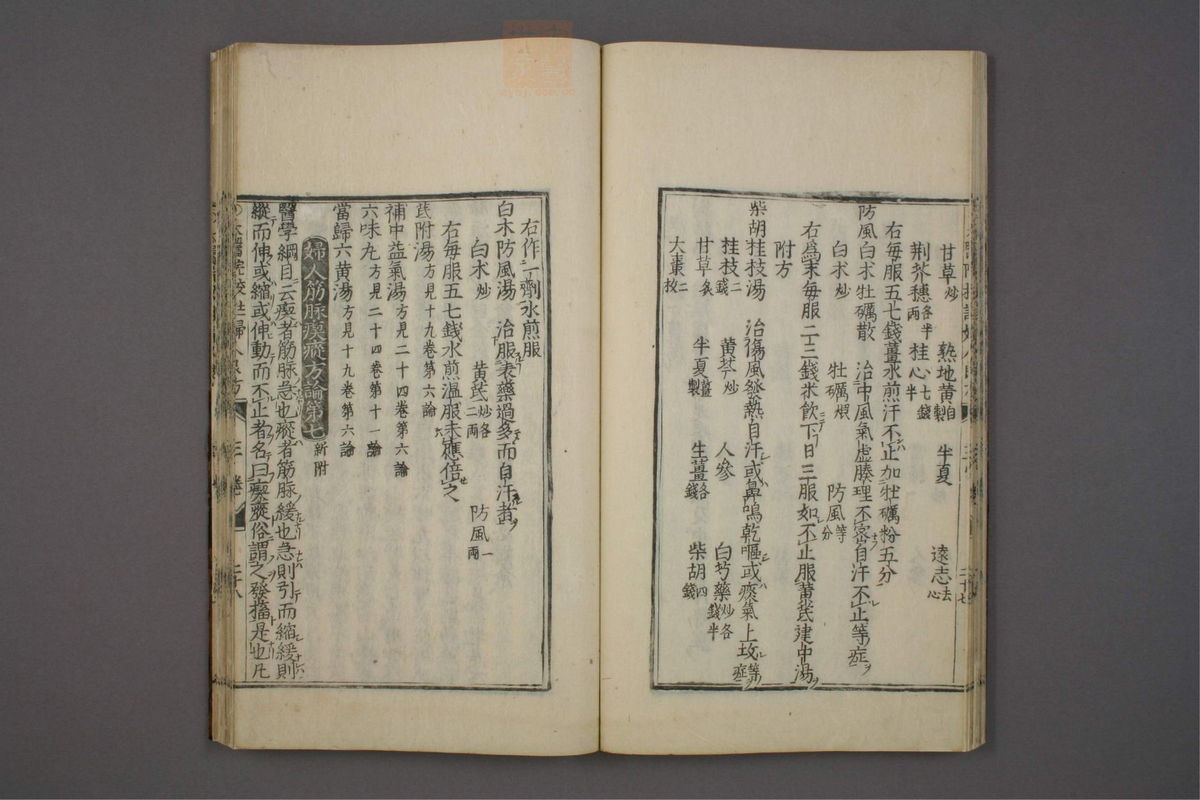 甘草炒 熟地黄自製 半夏 遠志去心
荆芥穗各半兩 桂心七錢半
右毎服五七錢薑水煎汗不止加牡礪粉五分
防風白术牡礪散 治中風氣虚腠理不密自汗不止等症
白术炒 牡礪煆 防風等分
右爲末毎服二三錢米飲下日三服如不止服黄芪建中湯
附方
柴胡桂枝湯 治傷風發熱自汗或鼻鳴乾嘔或痰氣上攻等症
桂枝二錢 黄芩炒 人參 白芍藥炒各錢半
甘草炙 半夏薑製 生薑各錢 柴胡四錢
大棗二枚
右作一劑水煎服
白术防風湯 治服表藥過多而自汗者
白术炒 黄芪炒各二兩 防風一兩
右毎服五七錢水煎温服未應倍之
芪附湯方見十九卷第六論
補中益氣湯方見二十四卷第六論
六味丸方見二十四卷第十一論
當歸六黄湯方見十九卷第六論
婦人筋脉瘈瘲方論第七新附
醫學綱目云瘈者筋脉急也瘲者筋脉緩也急則引而縮緩則
縱而伸或縮或伸動而不止者名曰瘈瘲俗謂之發搐是也凡